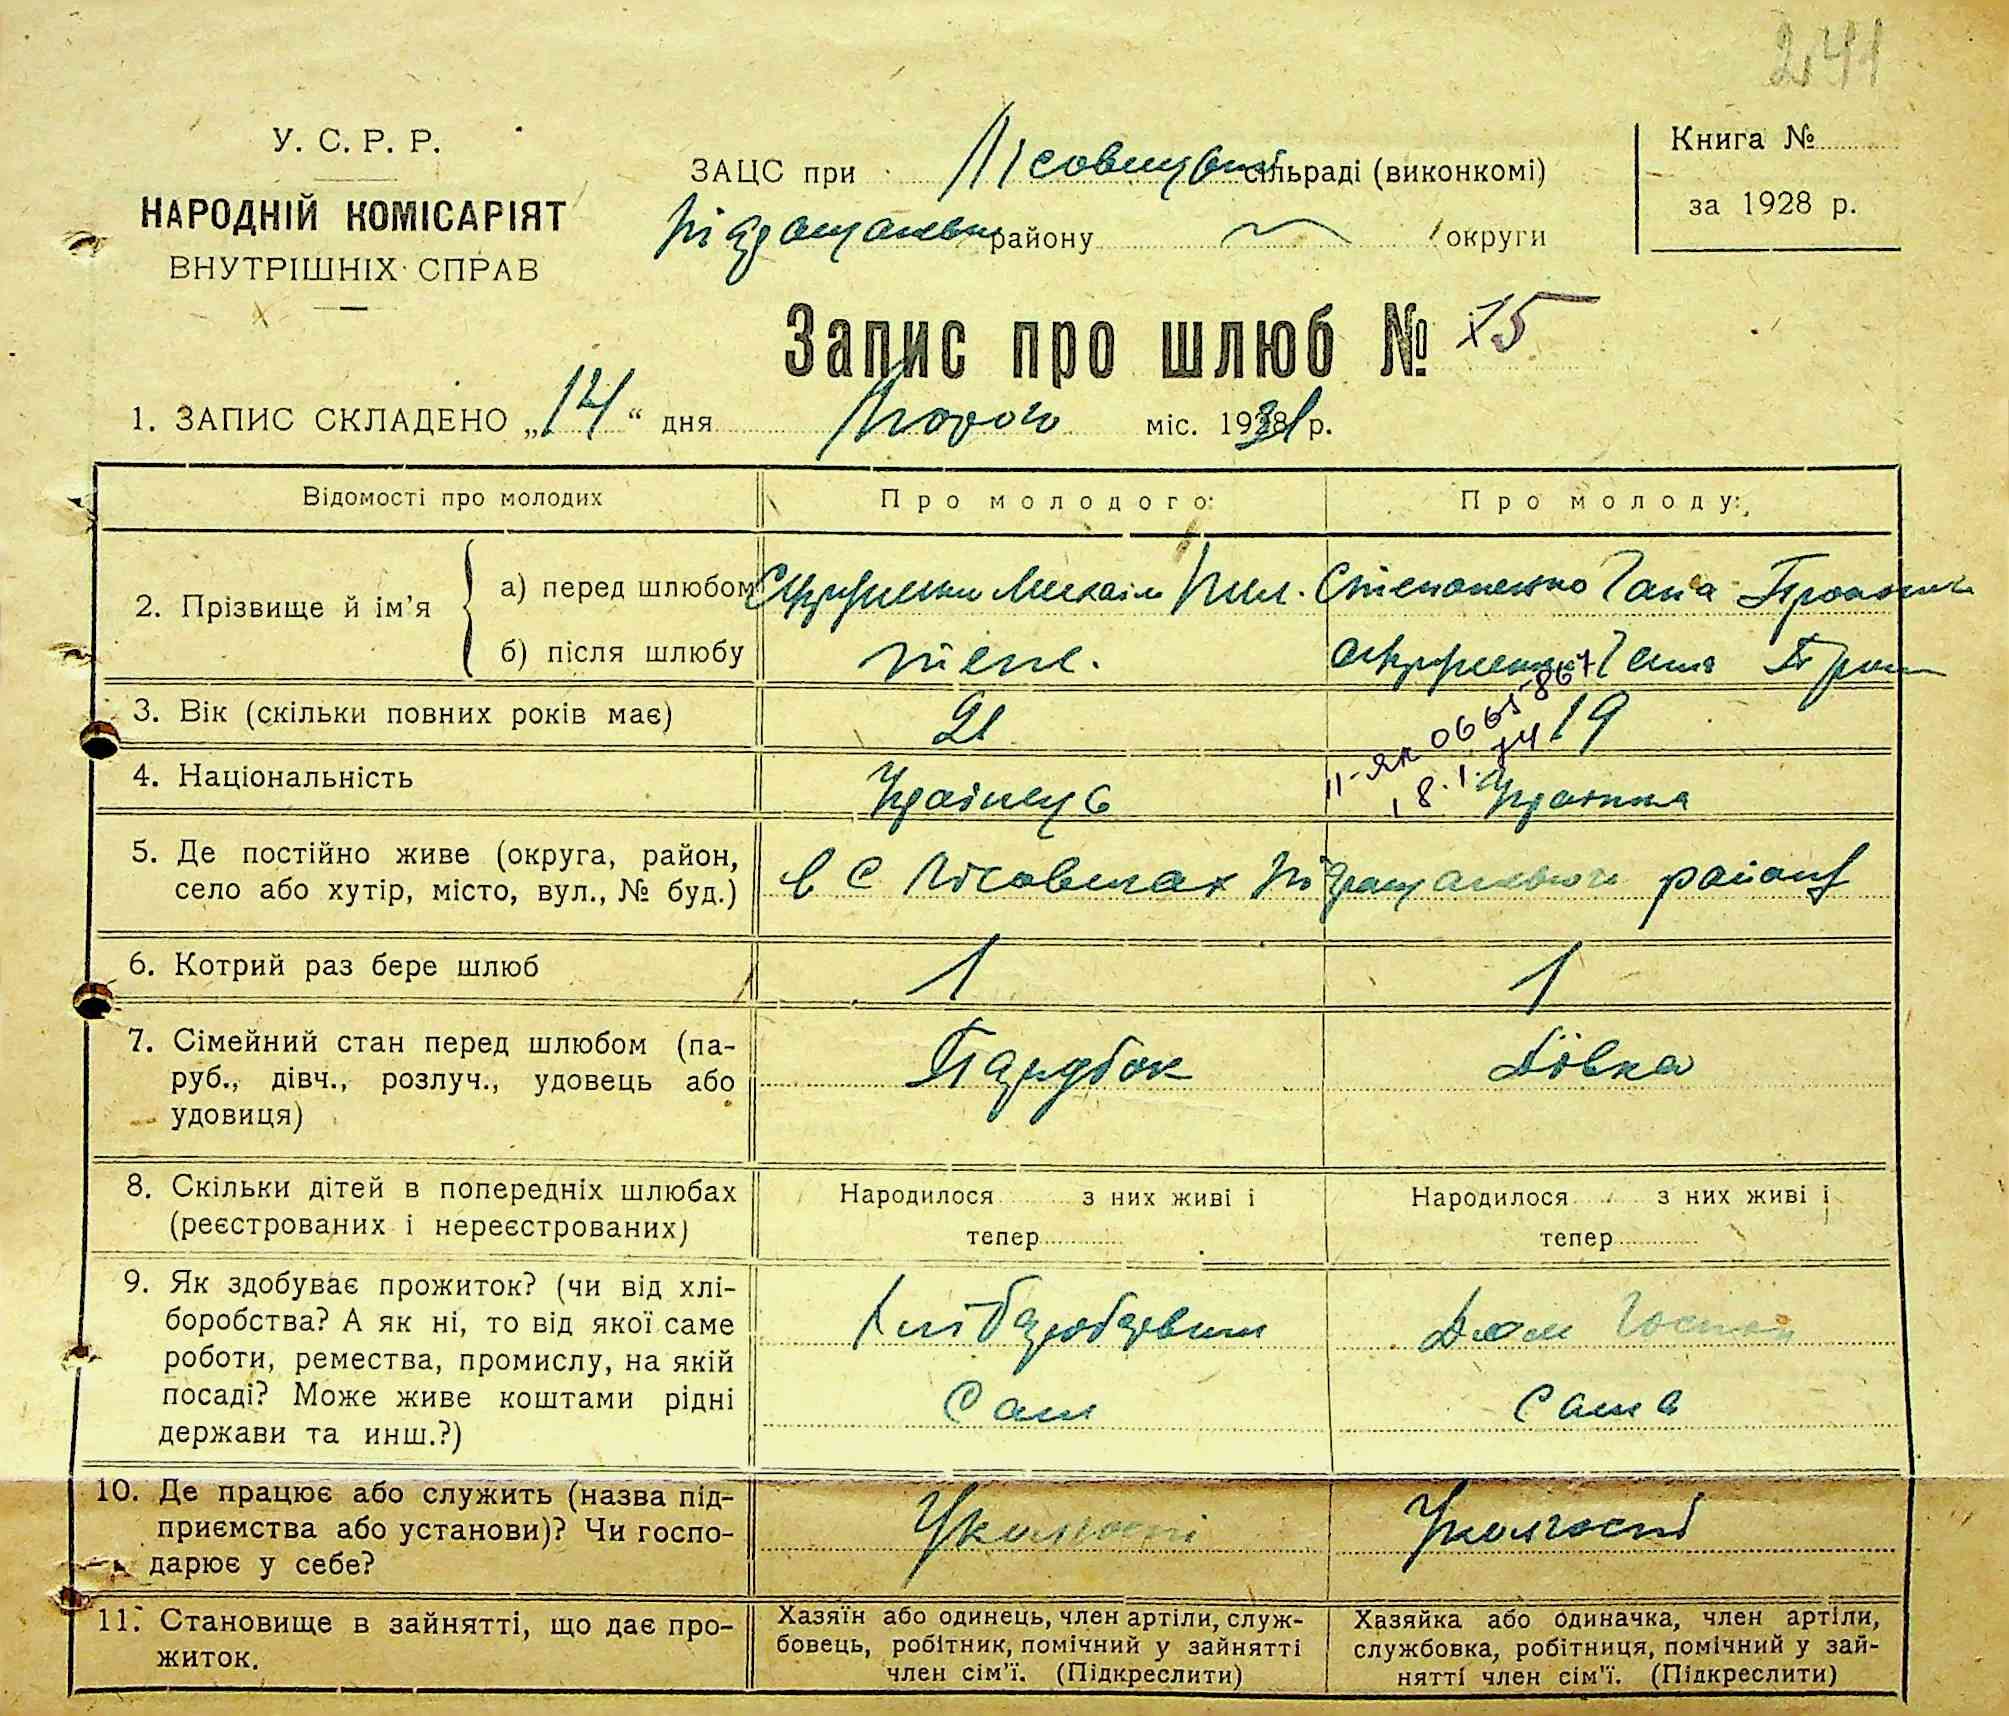 241
У. С. Р. Р.
НАРОДНІЙ КОМІСАРІЯТ
ВНУТРІШНІХ СПРАВ
ЗАЦС при сільраді (виконкомі)
району округи
Книга №
за 1928 р.
Запис про шлюб № 15
1. ЗАПИС СКЛАДЕНО „14“ дня Лютого міс. 1931 р.
Відомості про молодих Про молодого: Про молоду:
2. Прізвище й ім’я
а) перед шлюбом Михаіл Пил. Степаненко Гана
б) після шлюбу теж. Гана
3. Вік (скільки повних років має) 21 19
II-ЯК 0665867
18.I.74
4. Національність Українець Українка
5. Де постійно живе (округа, район,
село або хутір, місто, вул., № буд.) в с району
6. Котрий раз бере шлюб 1 1
7. Сімейний стан перед шлюбом (па-
руб., дівч., розлуч., удовець або
удовиця)
Парубок Дівка
8. Скільки дітей в попередніх шлюбах
(реєстрованих і нереєстрованих)
Народилося з них живі і
тепер
Народилося з них живі і
тепер
9. Як здобуває прожиток? (чи від хлі-
боробства? А як ні, то від якої саме
роботи, ремества, промислу, на якій
посаді? Може живе коштами рідні
держави та инш.?)
Дом Госпо
Сам Сама
10. Де працює або служить (назва під-
приємства або установи)? Чи госпо-
дарює у себе?
У колгоспі У колгоспі
11. Становище в зайнятті, що дає про-
житок.
Хазяїн або одинець, член артіли, служ-
бовець, робітник, помічний у зайнятті
член сім’ї. (Підкреслити)
Хазяйка або одиначка, член артіли,
службовка, робітниця, помічний у зай-
нятті член сім’ї. (Підкреслити)